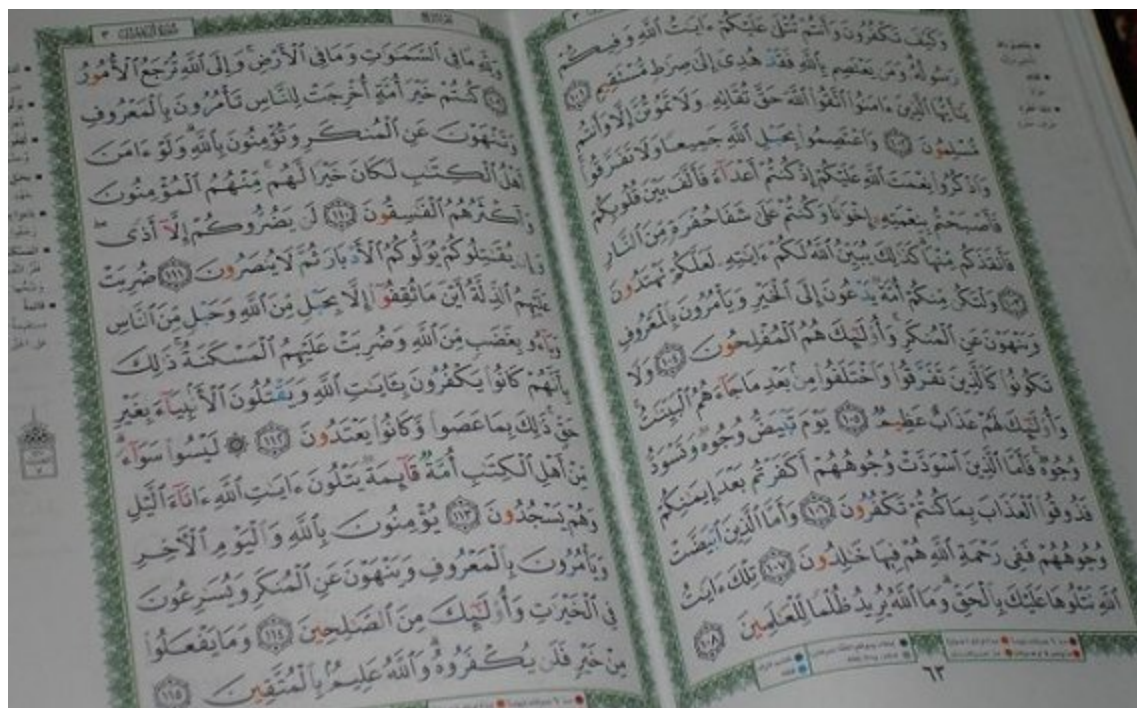 وَكَيْفَ تَكْفُرُونَ وَأَنتُمْ تُتْلَىٰ عَلَيْكُمْ ءَايَٰتُ ٱللَّهِ وَفِيكُمْ
رَسُولُهُۥ وَمَن يَعْتَصِم بِٱللَّهِ فَقَدْ هُدِىَ إِلَىٰ صِرَٰطٍ مُّسْتَقِيمٍ ١٠١
يَٰٓأَيُّهَا ٱلَّذِينَ ءَامَنُوا۟ ٱتَّقُوا۟ ٱللَّهَ حَقَّ تُقَاتِهِۦ وَلَا تَمُوتُنَّ إِلَّا وَأَنتُم
مُّسْلِمُونَ ١٠٢ وَٱعْتَصِمُوا۟ بِحَبْلِ ٱللَّهِ جَمِيعًا وَلَا تَفَرَّقُوا۟
وَٱذْكُرُوا۟ نِعْمَتَ ٱللَّهِ عَلَيْكُمْ إِذْ كُنتُمْ أَعْدَآءً فَأَلَّفَ بَيْنَ قُلُوبِكُمْ
فَأَصْبَحْتُم بِنِعْمَتِهِۦٓ إِخْوَٰنًا وَكُنتُمْ عَلَىٰ شَفَا حُفْرَةٍ مِّنَ ٱلنَّارِ
فَأَنقَذَكُم مِّنْهَا كَذَٰلِكَ يُبَيِّنُ ٱللَّهُ لَكُمْ ءَايَٰتِهِۦ لَعَلَّكُمْ تَهْتَدُونَ
١٠٣ وَلْتَكُن مِّنكُمْ أُمَّةٌ يَدْعُونَ إِلَى ٱلْخَيْرِ وَيَأْمُرُونَ بِٱلْمَعْرُوفِ
وَيَنْهَوْنَ عَنِ ٱلْمُنكَرِ وَأُو۟لَٰٓئِكَ هُمُ ٱلْمُفْلِحُونَ ١٠٤ وَلَا
تَكُونُوا۟ كَٱلَّذِينَ تَفَرَّقُوا۟ وَٱخْتَلَفُوا۟ مِنۢ بَعْدِ مَا جَآءَهُمُ ٱلْبَيِّنَٰتُ
وَأُو۟لَٰٓئِكَ لَهُمْ عَذَابٌ عَظِيمٌ ١٠٥ يَوْمَ تَبْيَضُّ وُجُوهٌ وَتَسْوَدُّ
وُجُوهٌ فَأَمَّا ٱلَّذِينَ ٱسْوَدَّتْ وُجُوهُهُمْ أَكَفَرْتُم بَعْدَ إِيمَٰنِكُمْ
فَذُوقُوا۟ ٱلْعَذَابَ بِمَا كُنتُمْ تَكْفُرُونَ ١٠٦ وَأَمَّا ٱلَّذِينَ ٱبْيَضَّتْ
وُجُوهُهُمْ فَفِى رَحْمَةِ ٱللَّهِ هُمْ فِيهَا خَٰلِدُونَ ١٠٧ تِلْكَ ءَايَٰتُ
ٱللَّهِ نَتْلُوهَا عَلَيْكَ بِٱلْحَقِّ وَمَا ٱللَّهُ يُرِيدُ ظُلْمًا لِّلْعَٰلَمِينَ ١٠٨
٦٣
وَلِلَّهِ مَا فِى ٱلسَّمَٰوَٰتِ وَمَا فِى ٱلْأَرْضِ وَإِلَى ٱللَّهِ تُرْجَعُ ٱلْأُمُورُ
١٠٩ كُنتُمْ خَيْرَ أُمَّةٍ أُخْرِجَتْ لِلنَّاسِ تَأْمُرُونَ بِٱلْمَعْرُوفِ
وَتَنْهَوْنَ عَنِ ٱلْمُنكَرِ وَتُؤْمِنُونَ بِٱللَّهِ وَلَوْ ءَامَنَ
أَهْلُ ٱلْكِتَٰبِ لَكَانَ خَيْرًا لَّهُم مِّنْهُمُ ٱلْمُؤْمِنُونَ
وَأَكْثَرُهُمُ ٱلْفَٰسِقُونَ ١١٠ لَن يَضُرُّوكُمْ إِلَّآ أَذًى
وَإِن يُقَٰتِلُوكُمْ يُوَلُّوكُمُ ٱلْأَدْبَارَ ثُمَّ لَا يُنصَرُونَ ١١١ ضُرِبَتْ
عَلَيْهِمُ ٱلذِّلَّةُ أَيْنَ مَا ثُقِفُوٓا۟ إِلَّا بِحَبْلٍ مِّنَ ٱللَّهِ وَحَبْلٍ مِّنَ ٱلنَّاسِ
وَبَآءُو بِغَضَبٍ مِّنَ ٱللَّهِ وَضُرِبَتْ عَلَيْهِمُ ٱلْمَسْكَنَةُ ذَٰلِكَ
بِأَنَّهُمْ كَانُوا۟ يَكْفُرُونَ بِـَٔايَٰتِ ٱللَّهِ وَيَقْتُلُونَ ٱلْأَنۢبِيَآءَ بِغَيْرِ
حَقٍّ ذَٰلِكَ بِمَا عَصَوا۟ وَّكَانُوا۟ يَعْتَدُونَ ١١٢ ۞ لَيْسُوا۟ سَوَآءً
مِّنْ أَهْلِ ٱلْكِتَٰبِ أُمَّةٌ قَآئِمَةٌ يَتْلُونَ ءَايَٰتِ ٱللَّهِ ءَانَآءَ ٱلَّيْلِ
وَهُمْ يَسْجُدُونَ ١١٣ يُؤْمِنُونَ بِٱللَّهِ وَٱلْيَوْمِ ٱلْءَاخِرِ
وَيَأْمُرُونَ بِٱلْمَعْرُوفِ وَيَنْهَوْنَ عَنِ ٱلْمُنكَرِ وَيُسَٰرِعُونَ
فِى ٱلْخَيْرَٰتِ وَأُو۟لَٰٓئِكَ مِنَ ٱلصَّٰلِحِينَ ١١٤ وَمَا يَفْعَلُوا۟
مِنْ خَيْرٍ فَلَن يُكْفَرُوهُ وَٱللَّهُ عَلِيمٌۢ بِٱلْمُتَّقِينَ ١١٥